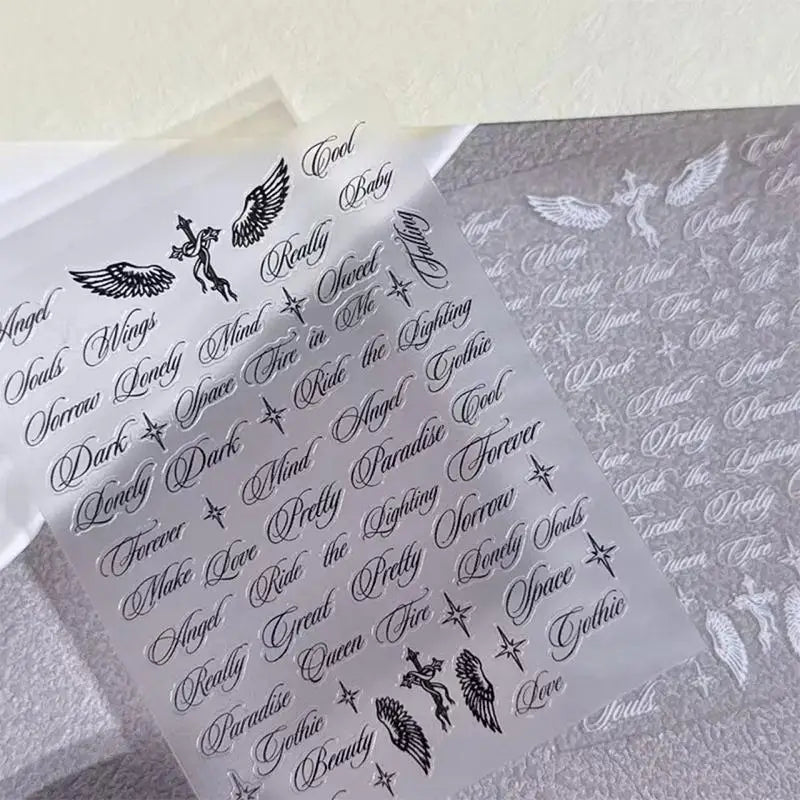 Cool
Baby
Really
Falling
Angel
Souls Wings
Sorrow Lonely Mind Sweet
Dark Space Fire in Me
Lonely Dark Ride the Lighting
Forever Mind Angel Gothic
Make Love Pretty Paradise Cool
Angel Ride the Lighting Forever
Really Great Pretty Sorrow
Paradise Queen Fire Lonely Souls
Gothic Space
Beauty Love Gothic
Cool
Angel Really
Wings Sweet
Lonely Mind
Space Fire in Me
Dark Ride the
Mind Angel
Love Pretty Paradise
Ride the Lighting
Great Pretty
Queen Fire
Souls